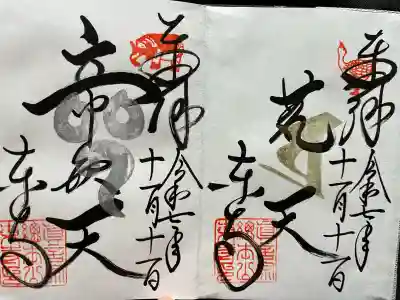 奉拝
令和七年
十一月十一日
梵天
東寺
奉拝
令和七年
十一月十一日
帝釈天
東寺